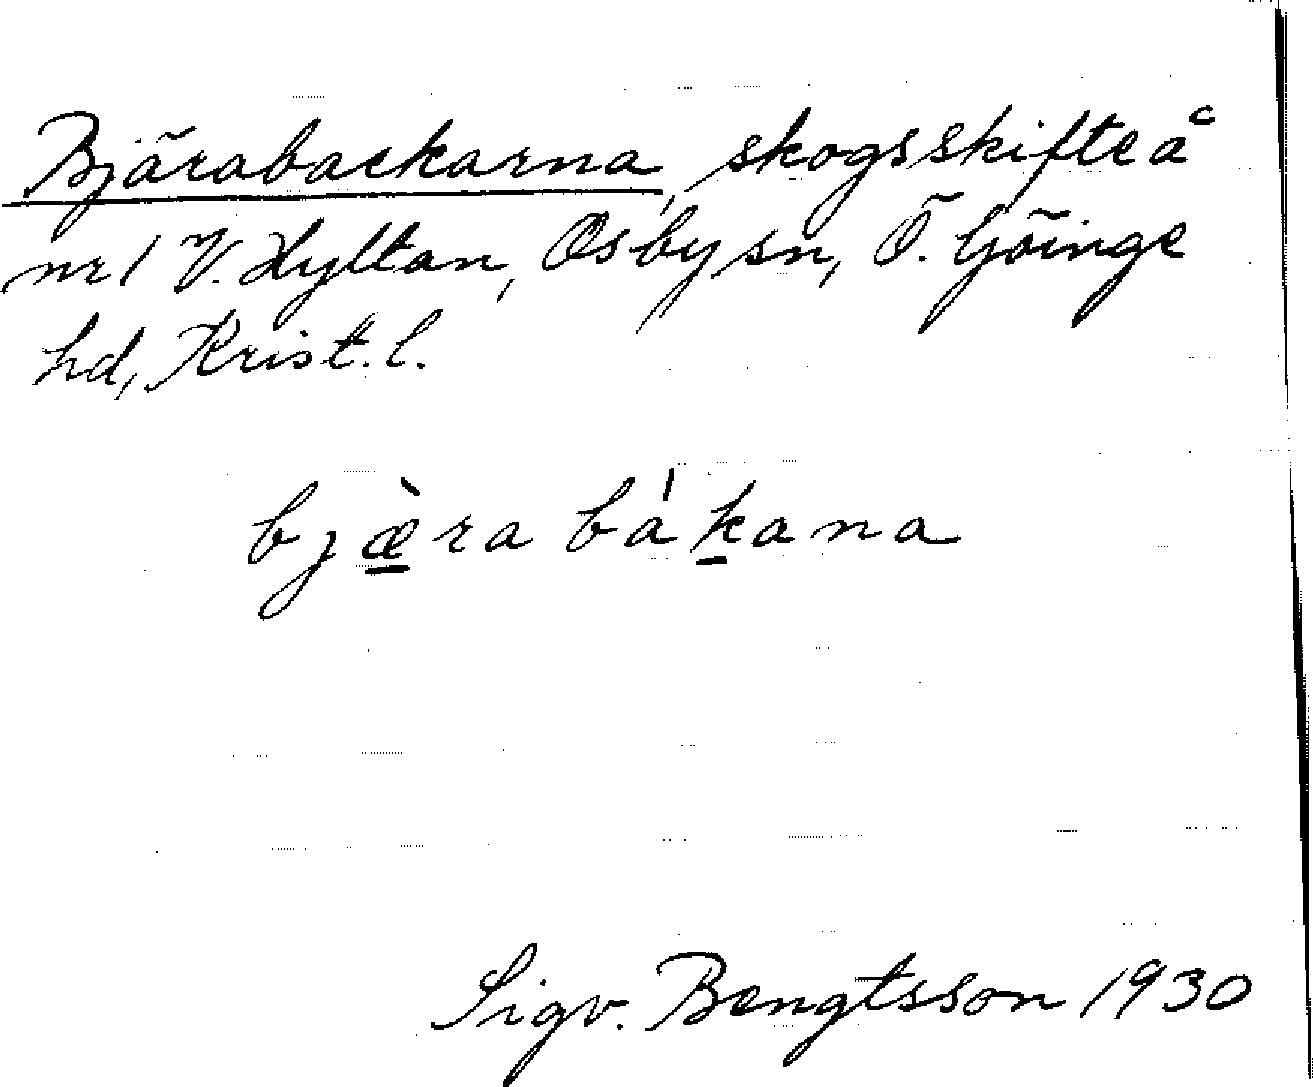 Bjärabackarna, skogsskifte å
nr 1 V. Hyltan, Osby sn, Ö. Göinge
hd, Krist. l.
bjæ̀ra bákana
Sigv. Bengtsson 1930